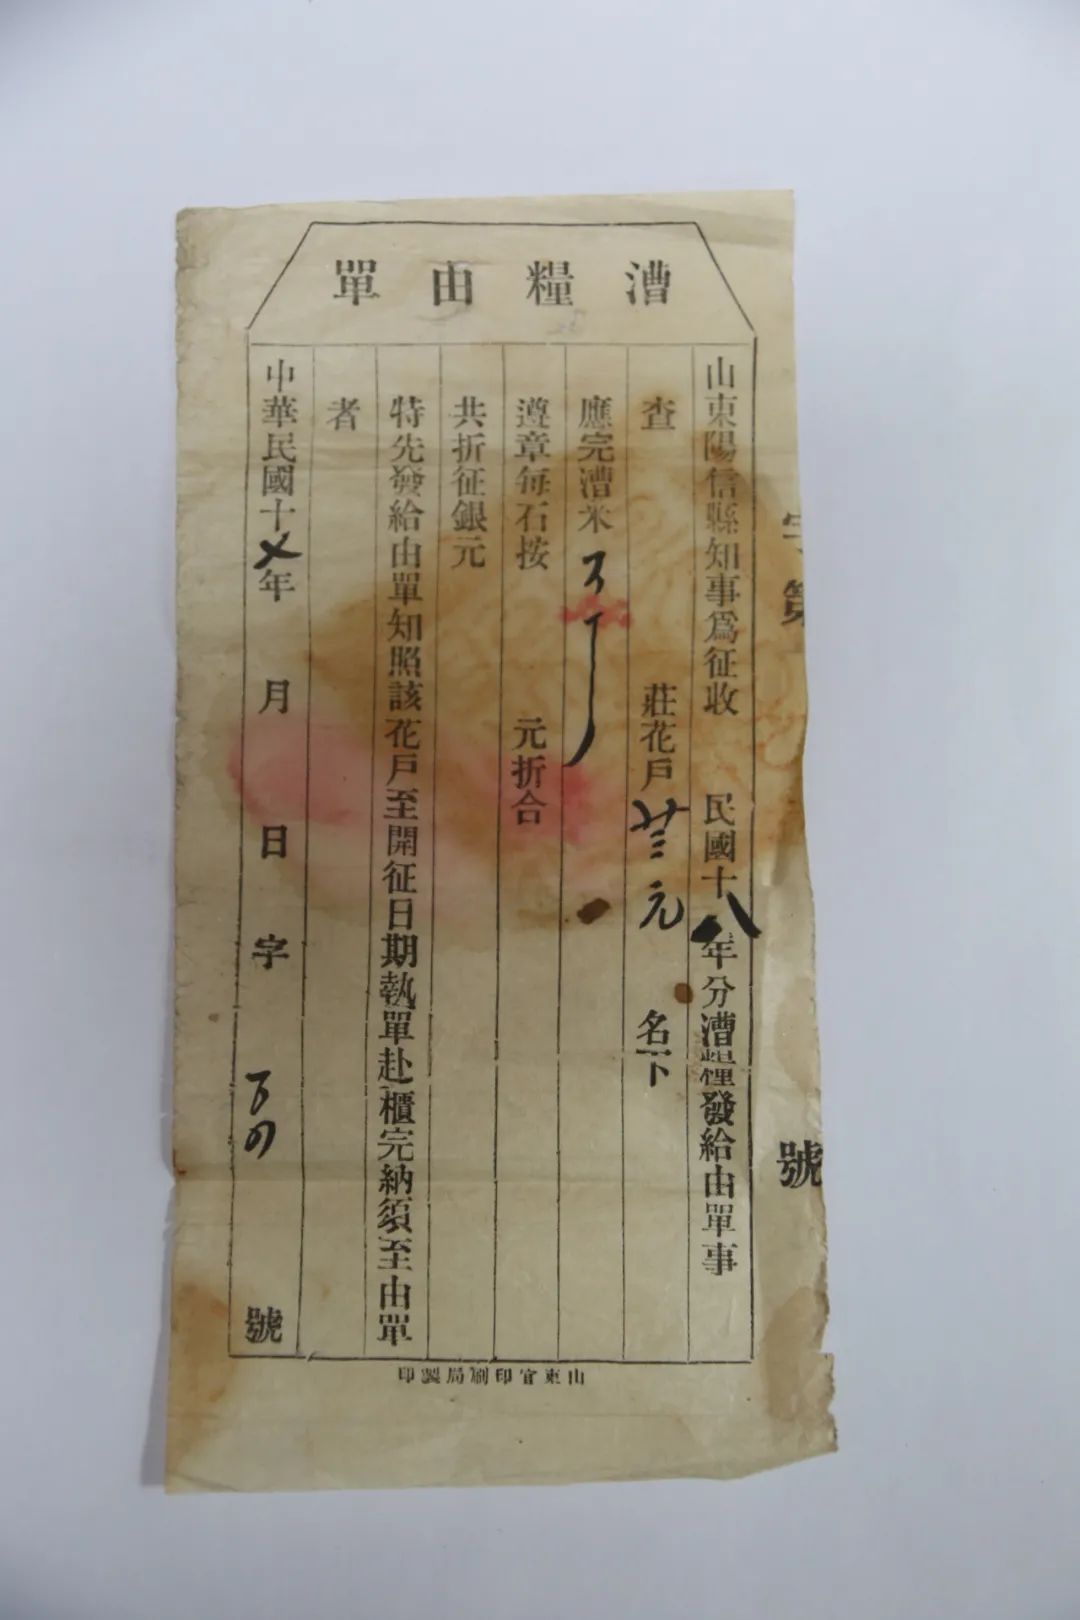 漕糧由單
字第　號
山東陽信縣知事爲征收　民國十八年分漕糧發給由單事
查　莊花戶　元　名下
應完漕米
遵章每石按　元折合
共折征銀元
特先發給由單知照該花戶至開征日期執單赴櫃完納須至由單
者
中華民國十　年　月　日　字　號
山東官印刷局製印